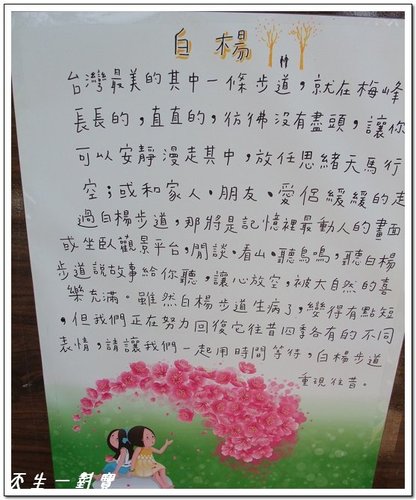 白楊
台灣最美的其中一條步道，就在梅峰
長長的，直直的，彷彿沒有盡頭，讓你
可以安靜漫走其中，放任思緒天馬行
空；或和家人、朋友、愛侶緩緩的走
過白楊步道，那將是記憶裡最動人的畫面
或坐臥觀景平台，閒談、看山、聽鳥鳴，聽白楊
步道說故事給你聽，讓心放空，被大自然的喜
樂充滿。雖然白楊步道生病了，變得有點短
，但我們正在努力回復它往昔四季各有的不同
表情，請讓我們一起用時間等待，白楊步道
重現往昔。
不生一對寶